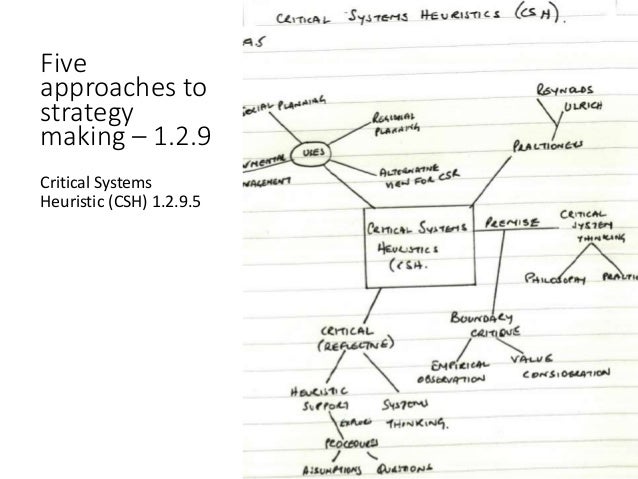 Five
approaches to
strategy
making – 1.2.9
Critical Systems
Heuristic (CSH) 1.2.9.5
CRITICAL SYSTEMS HEURISTICS (CSH).
SOCIAL PLANNING
REGIONAL
PLANNING
USES
ALTERNATIVE
VIEW FOR CSR
REYNOLDS
ULRICH
PRACTIONERS
CRITICAL SYSTEMS
HEURISTICS
(CSH.
PREMISE
CRITICAL
SYSTEM
THINKING
PHILOSOPHY
BOUNDARY
CRITIQUE
EMPIRICAL
OBSERVATION
VALUE
CONSIDERATION
CRITICAL
(REFLECTIVE)
HEURISTIC
SUPPORT
SYSTEMS
THINKING.
EXPLORE
PROCEDURES
ASSUMPTIONS
QUESTIONS